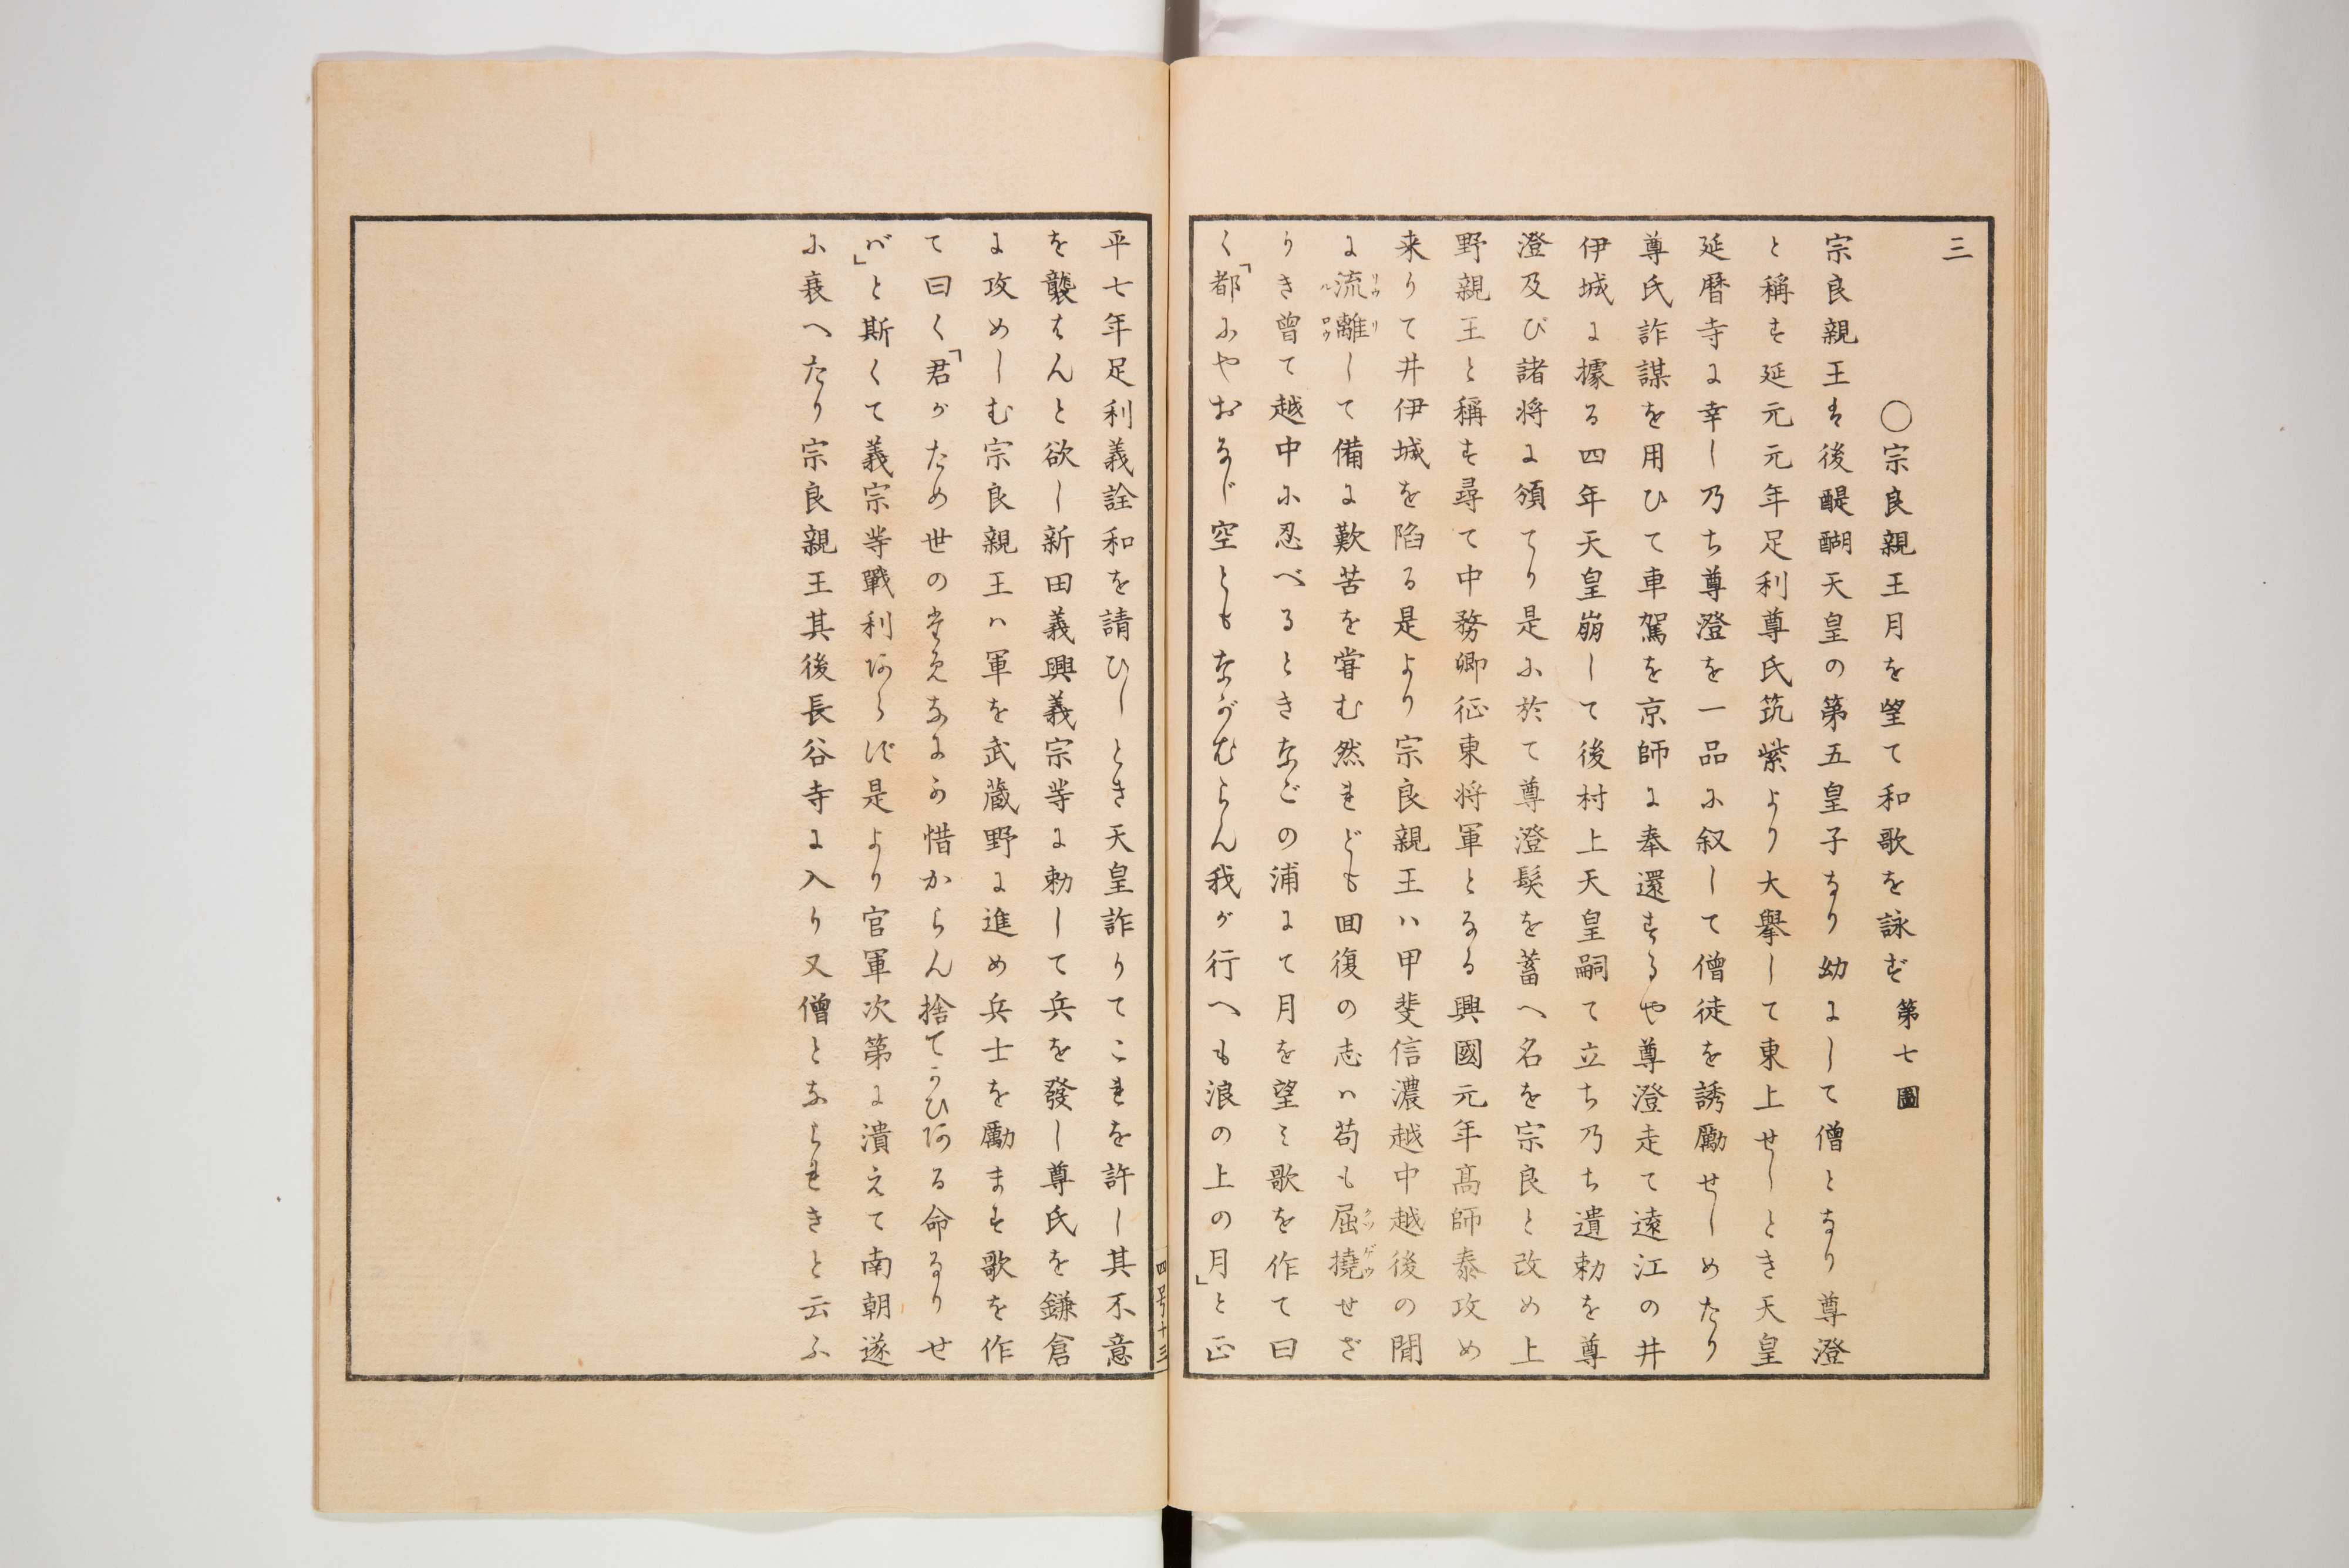 三
〇宗良親王月を望て和歌を詠ず 第七圖
宗良親王は後醍醐天皇の第五皇子なり幼にして僧となり尊澄
と稱す延元元年足利尊氏筑紫より大擧して東上せしとき天皇
延暦寺に幸し乃ち尊澄を一品に叙して僧徒を誘勵せしめたり
尊氏詐謀を用ひて車駕を京師に奉還するや尊澄走て遠江の井
伊城に據る四年天皇崩して後村上天皇嗣て立ち乃ち遺勅を尊
澄及び諸将に頒てり是に於て尊澄髮を蓄へ名を宗良と改め上
野親王と稱す尋て中務卿征東将軍となる興國元年髙師泰攻め
来りて井伊城を陷る是より宗良親王ハ甲斐信濃越中越後の間
に流離して備に歎苦を甞む然れども回復の志ハ苟も屈撓せざ
りき曽て越中に忍べるときなごの浦にて月を望ミ歌を作て曰
く「都にやおなじ空ともながむらん我が行へも浪の上の月」と正
平七年足利義詮和を請ひしとき天皇詐りてこれを許し其不意
を襲はんと欲し新田義興義宗等に勅して兵を發し尊氏を鎌倉
に攻めしむ宗良親王ハ軍を武蔵野に進め兵士を勵ます歌を作
て曰く「君がため世のため なにか惜からん捨てかひある命なりせ
ば」と斯くて義宗等戰利あらず是より官軍次第に潰えて南朝遂
に衰へたり宗良親王其後長谷寺に入り又僧となられきと云ふ
四号十三